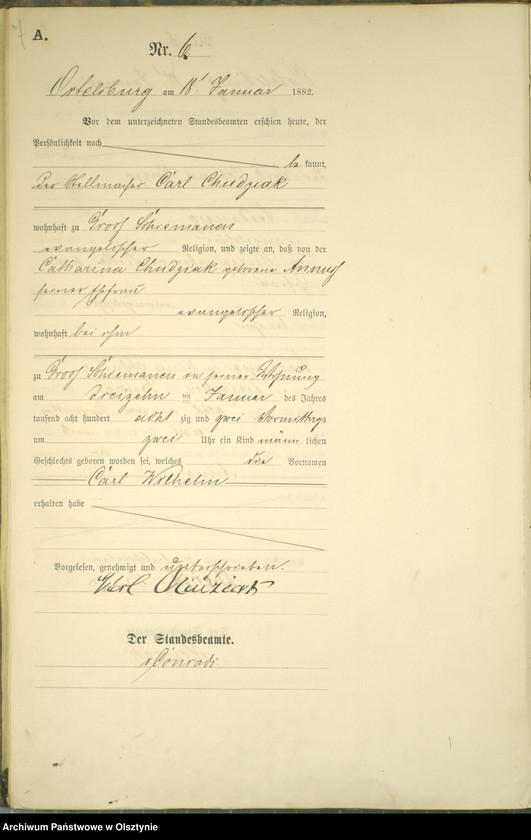 A.
Nr. 6
Ortelsburg am 18t Januar 1882.
Vor dem unterzeichneten Standesbeamten erschien heute, der
Persönlichkeit nach
be kannt,
der Stellmacher Carl Chudziak
wohnhaft zu Groß Schiemanen
evangelischer Religion, und zeigte an, daß von der
Catharina Chudziak geborene Annuß
seiner Ehefrau
evangelischer Religion,
wohnhaft bei ihm
zu Groß Schiemanen in seiner Wohnung
am dreizehn ten Januar des Jahres
tausend acht hundert acht zig und zwei Vormittags
um zwei Uhr ein Kind männ lichen
Geschlechts geboren worden sei, welches die Vornamen
Carl Wilhelm
erhalten habe
Vorgelesen, genehmigt und unterschrieben.
Der Standesbeamte.
Conradi
Archiwum Państwowe w Olsztynie